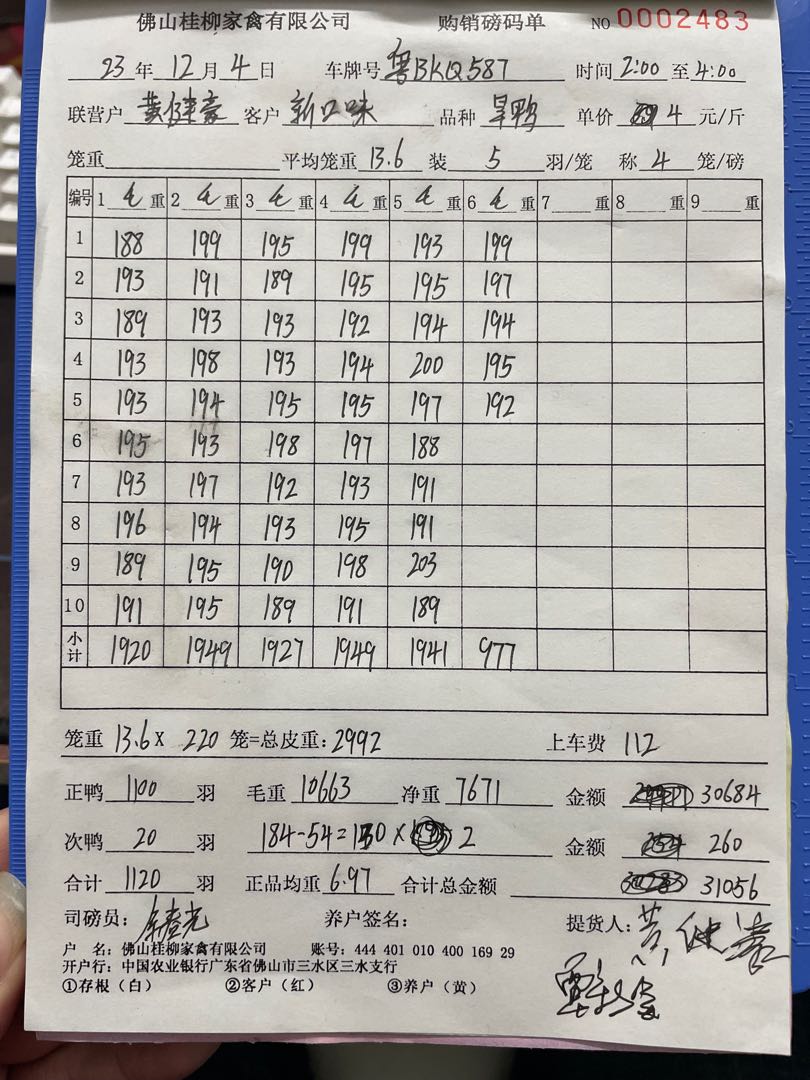 佛山桂柳家禽有限公司 购销磅码单 NO 0002483
23 年 12 月 4 日 车牌号 粤BKQ587 时间 2:00 至 4:00
联营户 黄健豪 客户 新口味 品种 旱鸭 单价 4 元/斤
笼重 平均笼重 13.6 装 5 羽/笼 称 4 笼/磅
编号 1 毛 重 2 毛 重 3 毛 重 4 毛 重 5 毛 重 6 毛 重 7 重 8 重 9 重
1 188 199 195 199 193 199
2 193 191 189 195 195 197
3 189 193 193 192 194 194
4 193 198 193 194 200 195
5 193 194 195 195 197 192
6 195 193 198 197 188
7 193 197 192 193 191
8 196 194 193 195 191
9 189 195 190 198 203
10 191 195 189 191 189
小计 1920 1949 1927 1949 1941 977
笼重 13.6 X 220 笼=总皮重: 2992 上车费 112
正鸭 1100 羽 毛重 10663 净重 7671 金额 30684
次鸭 20 羽 184-54=130 X 2 金额 260
合计 1120 羽 正品均重 6.97 合计总金额 31056
司磅员: 养户签名: 提货人: 黄健豪
户 名: 佛山桂柳家禽有限公司 账号: 444 401 010 400 169 29
开户行: 中国农业银行广东省佛山市三水区三水支行
①存根（白） ②客户（红） ③养户（黄）